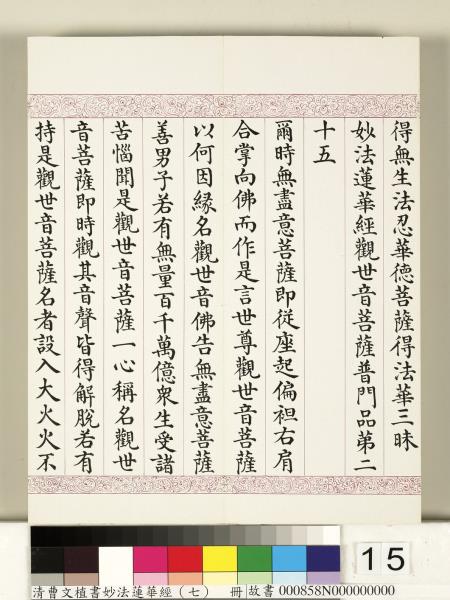 得無生法忍華德菩薩得法華三昧
妙法蓮華經觀世音菩薩普門品第二
十五
爾時無盡意菩薩即從座起偏袒右肩
合掌向佛而作是言世尊觀世音菩薩
以何因緣名觀世音佛告無盡意菩薩
善男子若有無量百千萬億衆生受諸
苦惱聞是觀世音菩薩一心稱名觀世
音菩薩即時觀其音聲皆得解脫若有
持是觀世音菩薩名者設入大火火不
15
清曹文植書妙法蓮華經(七) 冊 故書 000858N000000000